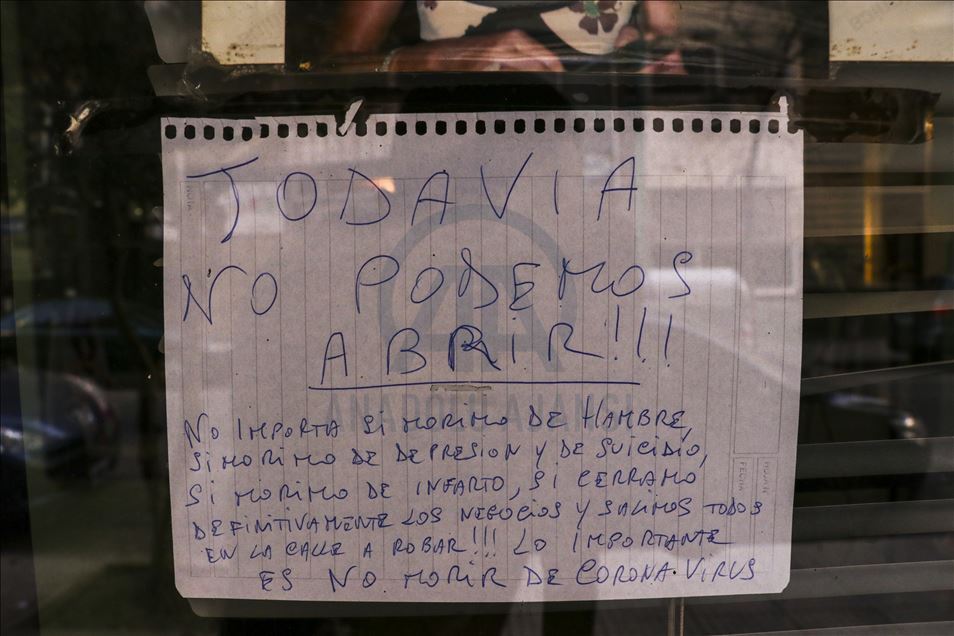 TODAVIA
NO PODEMOS
ABRIR!!!
NO IMPORTA SI MORIMO DE HAMBRE,
SI MORIMO DE DEPRESION Y DE SUICIDIO,
SI MORIMO DE INFARTO, SI CERRAMO
DEFINITIVAMENTE LOS NEGOCIOS Y SALIMOS TODOS
EN LA CALLE A ROBAR!!! LO IMPORTANTE
ES NO MORIR DE CORONA VIRUS
AA
ANADOLU AJANSI
FECHA